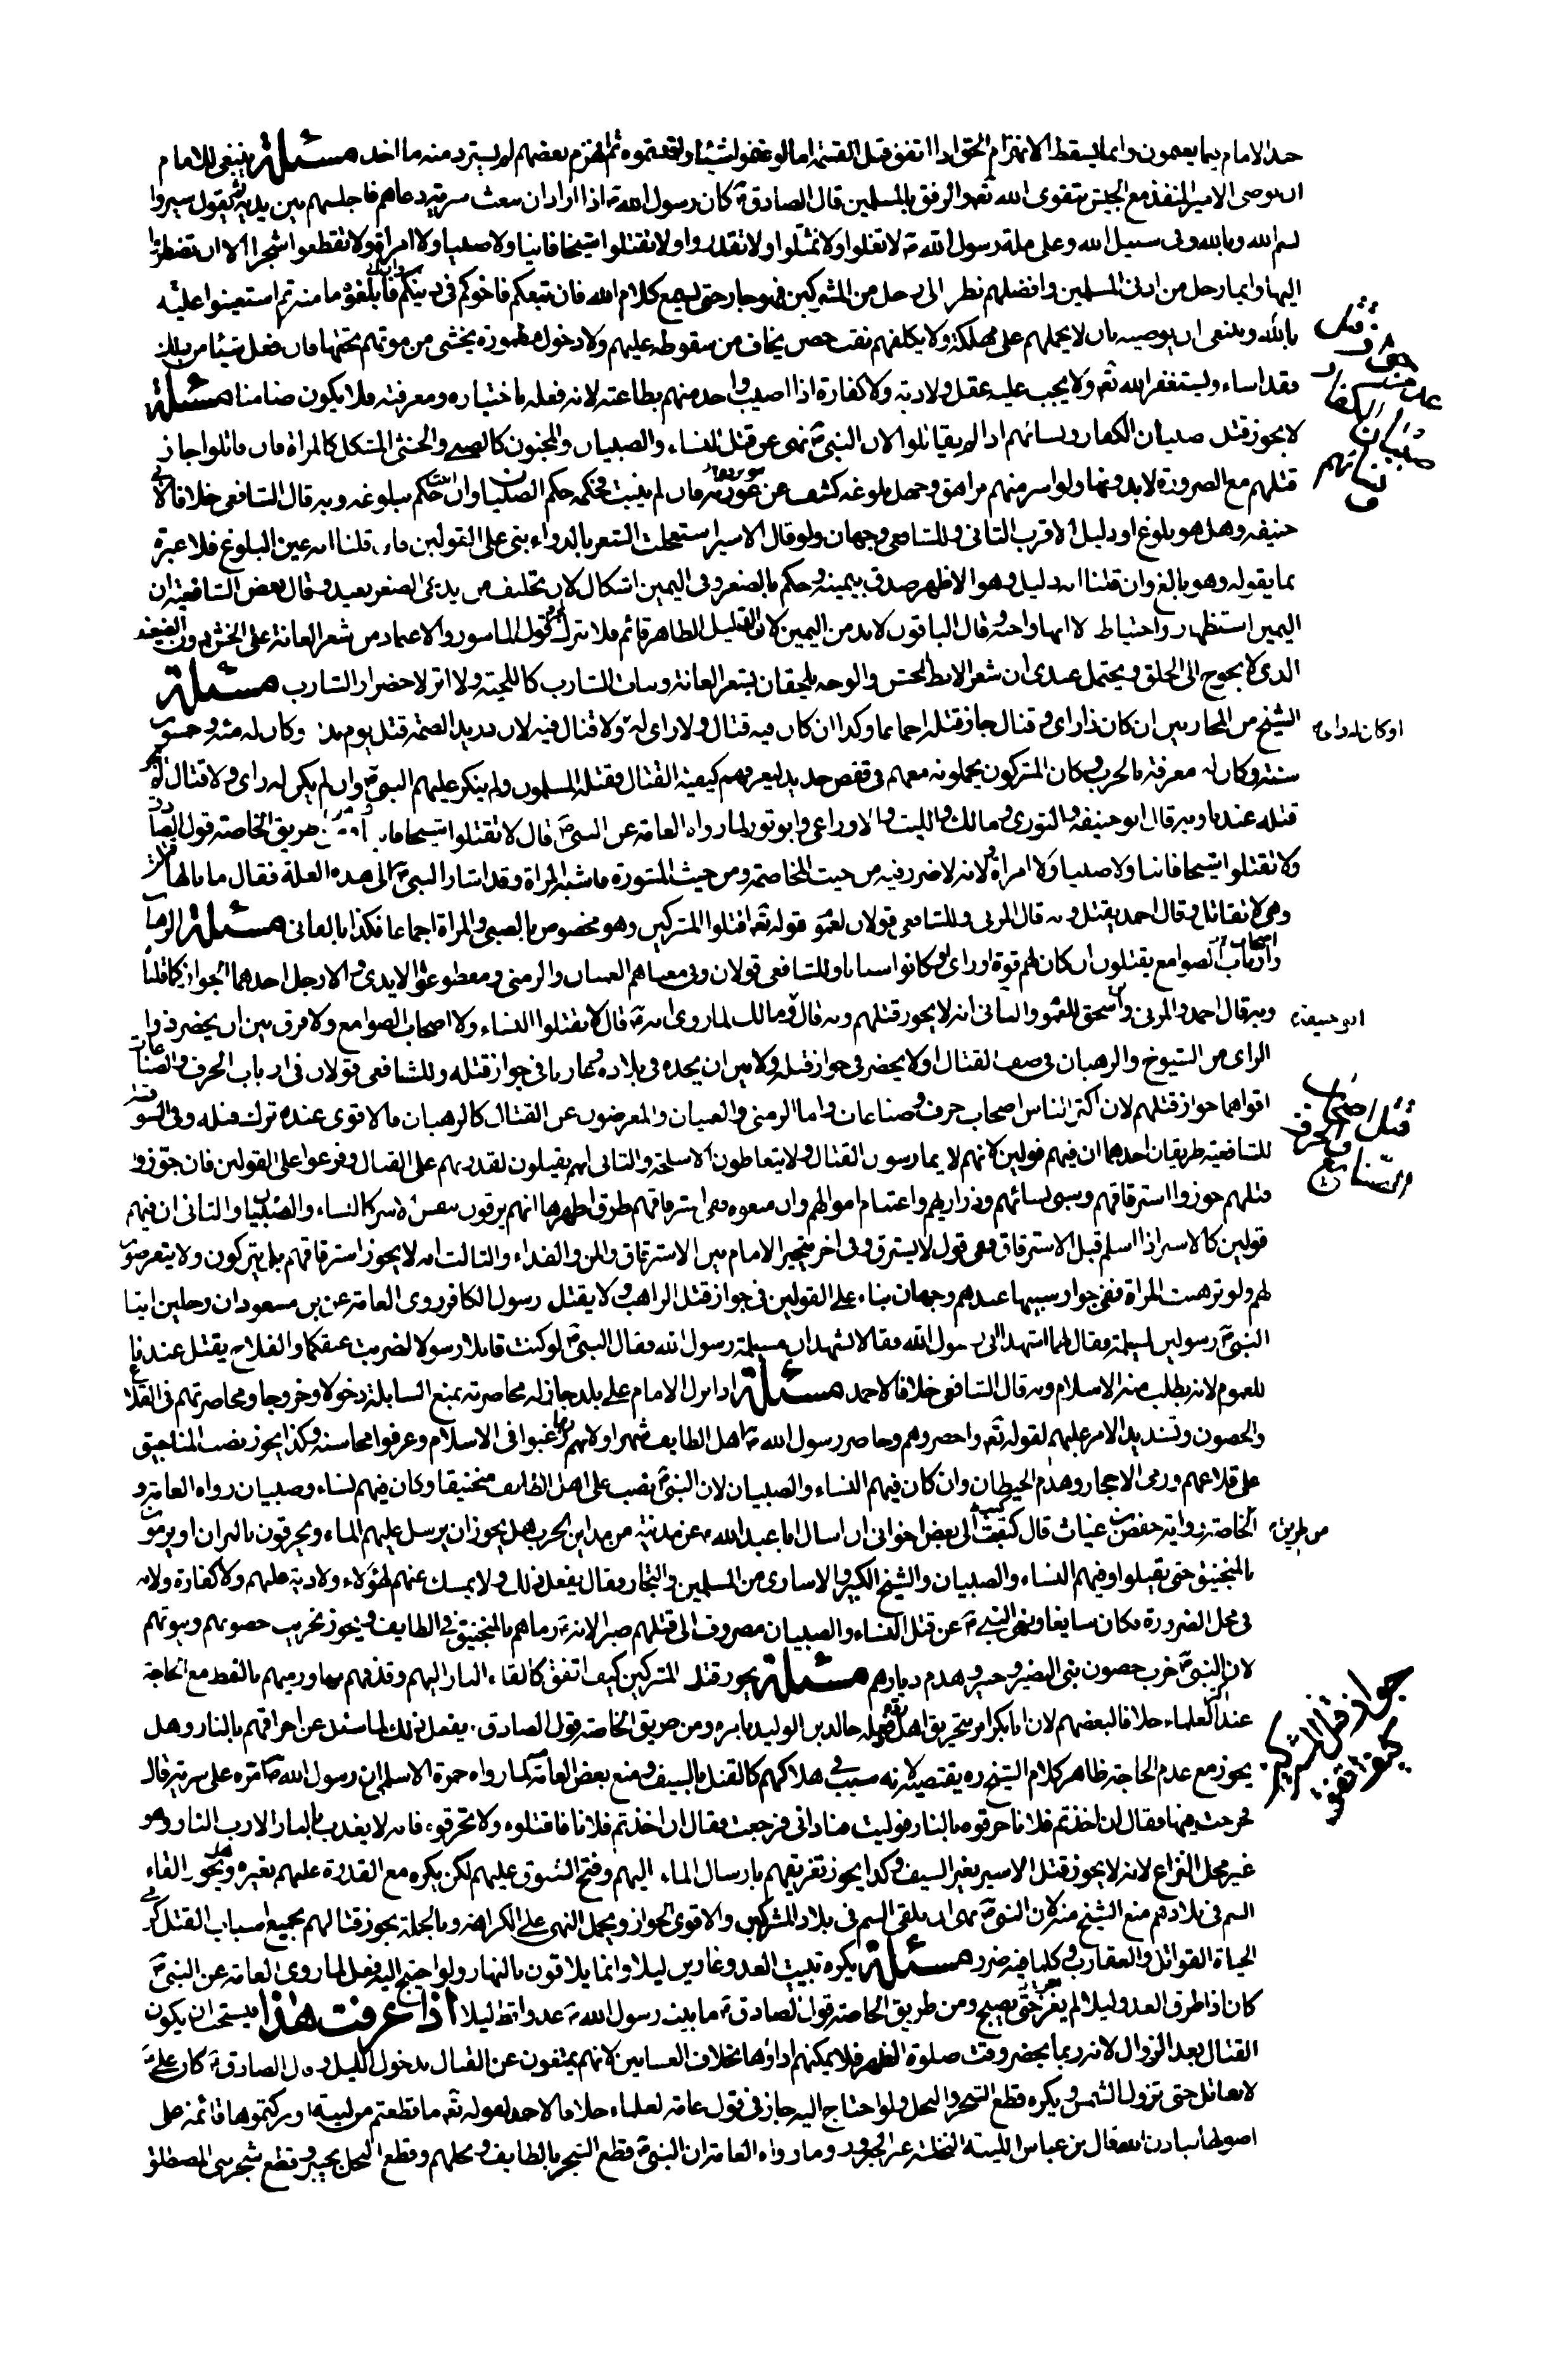 حد الامام فيما يغنمون وانما يسقط الانهزام الحق اذا اتفق قبل القسمة اما لو غنموا شيئا واقتسموه ثم انهزم بعضهم لم يسترد منه ما اخذ مسئلة ينبغى للامام
ان يوصى الامير المنفذ مع الجيش بتقوى الله تعه والرفق بالمسلمين قال الصادق ع كان رسول الله ص اذا اراد ان يبعث سرية دعاهم فاجلسهم بين يديه ثم يقول سيروا
بسم الله وبالله وفى سبيل الله وعلى ملة رسول الله ص لا تغلوا ولا تمثلوا ولا تغدروا ولا تقتلوا شيخا فانيا ولا صبيا ولا امراة ولا تقطعوا شجرا الا ان تضطروا
اليها وايما رجل من ادنى المسلمين وافضلهم نظر الى رجل من المشركين فهو جار حتى يسمع كلام الله فان تبعكم فاخوكم فى دينكم وان ابى فابلغوه مامنه ثم استعينوا عليه
بالله وينبغى ان يوصيه بان لا يحملهم على مهلكة ولا يكلفهم نقب حصن يخاف من سقوطه عليهم ولا دخول مطمورة يخشى من موتهم تحتها فان فعل شيئا من ذلك
فقد اساء ويستغفر الله تعه ولا يجب عليه عقل ولا دية ولا كفارة اذا اصيب واحد منهم بطاعته لانه فعله باختياره ومعرفته فلا يكون ضامنا مسئلة
لا يجوز قتل صبيان الكفار ونسائهم اذا لم يقاتلوا لان النبى ص نهى عن قتل النساء والصبيان والمجنون كالصبى والخنثى المشكل كالمراة فان قاتلوا جاز
قتلهم مع الضرورة لا بدونها ولو اسر منهم مراهق وجهل بلوغه كشف عن مؤتزره فان لم ينبت فحكمه حكم الصبيان وان انبت حكم ببلوغه وبه قال الشافعى خلافا لابى
حنيفه وهل هو بلوغ او دليل الاقرب الثانى وللشافعى وجهان ولو قال الاسير استعجلت الشعر بالدواء بنى على القولين فان قلنا انه عين البلوغ فلا عبرة
بما يقوله وهو بالغ وان قلنا انه دليل وهو الاظهر صدق بيمينه وحكم بالصغر وفى اليمين اشكال لان تحليف من يدعى الصغر بعيد وقال بعض الشافعية ان
اليمين استظهار واحتياط لا انها واجبة وقال الباقون لا بد من اليمين لان الدليل الظاهر قائم فلا يترك بمجرد قول الماسور والاعتماد من شعر العانة على الخشن دون الضعيف
الذى لا يحوج الى الحلق ويحتمل عندى ان شعر الابط الخشن والوجه يلحقان بشعر العانة ونبات الشارب كاللحية ولا اثر لاخضرار الشارب مسئلة
الشيخ من المحاربين ان كان ذا راى وقتال جاز قتله اجماعا وكذا ان كان فيه قتال ولا راى له او كان له راى ولا قتال فيه لان دريد الصمة قتل يوم بدر وكان له مئة وخمسون
سنة وكان له معرفة بالحرب وكان المشركون يحملونه معهم فى قفص حديد ليعرفهم كيفية القتال فقتله المسلمون ولم ينكر عليهم النبى ص وان لم يكن له راى ولا قتال لم يجز
قتله عندنا وبه قال ابو حنيفه والثورى ومالك والليث والاوزاعى وابو ثور لما رواه العامة عن النبى ص قال لا تقتلوا شيخا فانيا ومن طريق الخاصة قول الصادق ع
ولا تقتلوا شيخا فانيا ولا صبيا ولا امراة ولانه لا ضرر فيه من حيث المخاصمة ومن حيث المشورة فاشبه المراة وقد اشار النبى ص الى هذه العلة فقال ما بالها قتلت
وهى لا تقاتل وقال احمد يقتل وبه قال المزنى وللشافعى قولان لعموم قوله تعه اقتلوا المشركين وهو مخصوص بالصبى والمراة اجماعا فكذا بالفانى مسئلة الرهبان
وارباب الصوامع يقتلون ان كان لهم قوة او راى او كانوا شبانا وللشافعى قولان وفى معناهم العميان والزمنى ومقطوعوا الايدى والارجل احدهما الجواز كما قلناه
وبه قال احمد والمزنى واسحق للعموم والثانى انه لا يجوز قتلهم وبه قال ابو حنيفة ومالك لما روى انه ص قال لا تقتلوا النساء ولا اصحاب الصوامع ولا فرق بين ان يحضر ذوا
الراى من الشيوخ والرهبان فى صف القتال او لا يحضر فى جواز قتله ولا بين ان يجده فى بلاده وغيرها فى جواز قتله وللشافعى قولان فى ارباب الحرف والصناعات
اقواهما جواز قتلهم لان اكثر الناس اصحاب حرف وصناعات واما الزمنى والعميان والمعرضون عن القتال كالرهبان فالاقوى عنده ترك قتله وفى السوقة
للشافعية طريقان احدهما ان فيهم قولين لانهم لا يمارسون القتال ولا يتعاطون الاسلحة والثانى انهم يقتلون لقدرتهم على القتال وفرعوا على القولين فان جوزوا
قتلهم جوزوا استرقاقهم وسبى نسائهم وذراريهم واغتنام اموالهم وان منعوه ففى استرقاقهم طرق اظهرها انهم يرقون بنفس الاسر كالنساء والصبيان والثانى ان فيهم
قولين كالاسير اذا اسلم قبل الاسترقاق ففى قول لا يسترق وفى اخر يتخير الامام بين الاسترقاق والمن والفداء والثالث انه لا يجوز استرقاقهم بل يتركون ولا يتعرضون
لهم ولو ترهبت المراة ففى جواز سبيها عندهم وجهان بناء على القولين فى جواز قتل الراهب ولا يقتل رسول الكافر روى العامة عن بن مسعود ان رجلين اتيا
النبى ص رسولين لمسيلمة فقال لهما اشهدا انى رسول الله فقالا نشهد ان مسيلمة رسول الله فقال النبى ص لو كنت قاتلا رسولا لضربت عنقكما والفلاح يقتل عندنا
للعموم لانه يطلب منه الاسلام وبه قال الشافعى خلافا لاحمد مسئلة اذا نزل الامام على بلد جاز له محاصرته بمنع السابلة دخولا وخروجا ومحاصرتهم فى القلاع
والحصون وتشديد الامر عليهم لقوله تعه واحصروهم وحاصر رسول الله ص اهل الطايف شهرا ولانهم ربما رغبوا فى الاسلام وعرفوا محاسنه وكذا يجوز نصب المناجيق
على قلاعهم ورمى الاحجار وهدم الحيطان وان كان فيهم النساء والصبيان لان النبى ص نصب على اهل الطايف منجنيقا وكان فيهم نساء وصبيان رواه العامة و
من طريق الخاصة رواية حفص بن غياث قال كتب الى بعض اخوانى ان اسال ابا عبد الله ع عن مدينة من مداين الحرب هل يجوز ان يرسل عليهم الماء ويحرقون بالنيران او يرمون
بالمنجنيق حتى يقتلوا وفيهم النساء والصبيان والشيخ الكبير والاسارى من المسلمين والتجار فقال يفعل ذلك ولا يمسك عنهم لهؤلاء ولا دية عليهم ولا كفارة ولانه
فى محل الضرورة فكان سايغا ونهى النبى ص عن قتل النساء والصبيان مصروف الى قتلهم صبرا لانه ص رماهم بالمنجنيق فى الطايف ويجوز تخريب حصونهم وبيوتهم
لان النبى ص خرب حصون بنى النضير وخيبر وهدم ديارهم مسئلة يجوز قتل المشركين كيف اتفق كالقاء النار اليهم وقذفهم بها ورميهم بالنفط مع الحاجة
عند اكثر العلماء خلافا لبعضهم لان ابا بكر امر بتحريق اهل الردة وفعله خالد بن الوليد بامره ومن طريق الخاصة قول الصادق ع يفعل ذلك لما سئل عن احراقهم بالنار وهل
يجوز مع عدم الحاجة ظاهر كلام الشيخ ره يقتضيه لانه سبب فى هلاكهم كالقتل بالسيف ومنع بعض العامة لما رواه حمزة الاسلمى ان رسول الله ص امره على سرية قال
فخرجت فيها فقال ان اخذتم فلانا فاحرقوه بالنار فوليت فنادانى فرجعت فقال ان اخذتم فلانا فاقتلوه ولا تحرقوه فانه لا يعذب بالنار الا رب النار وهو
غير محل النزاع لانه لا يجوز قتل الاسير بغير السيف وكذا يجوز تغريقهم بارسال الماء اليهم وفتح البثوق عليهم لكن يكره مع القدرة عليهم بغيره وهل يجوز القاء
السم فى بلادهم منع الشيخ منه لان النبى ص نهى ان يلقى السم فى بلاد المشركين والاقوى الجواز ويحمل النهى على الكراهة وبالجملة يجوز قتالهم بجميع اسباب القتل كرمى
الحياة القواتل والعقارب وكلما فيه ضرر مسئلة يكره تبييت العدو غارين ليلا وانما يلاقون بالنهار ولو احتيج اليه فعل لما روى العامة عن النبى ص
كان اذا طرق العدو ليلا لم يغر حتى يصبح ومن طريق الخاصة قول الصادق ع ما بيت رسول الله ص عدوا قط ليلا اذا عرفت هذا فيستحب ان يكون
القتال بعد الزوال لانه ربما يحضر وقت صلوة الظهر فلا يمكنهم اداؤها بخلاف العشاءين لانهم يمتنعون عن القتال بدخول الليل وقال الصادق ع كان على ع
لا يقاتل حتى تزول الشمس ويكره قطع الشجر والنخل ولو احتاج اليه جاز فى قول عامة العلماء خلافا لاحمد لقوله تعه ما قطعتم من لينة او تركتموها قائمة على
اصولها فباذن الله قال بن عباس اللينة النخلة غير الجعرور وما رواه العامة ان النبى ص قطع الشجر بالطايف ونخلهم وقطع النخل بخيبر وقطع شجر بنى المصطلق
قتل
صبيان الكفار
ونسائهم
او كان له راى
ابو حنيفة
قتل اصحاب
الحرف
والصنايع
من طريق
جواز قتل المشركين
كيف اتفق